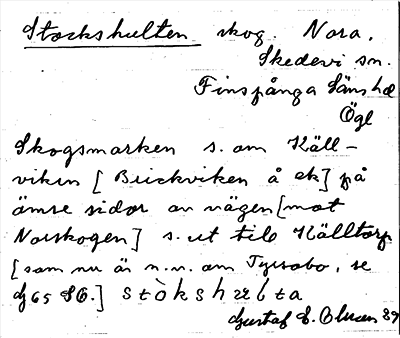 Stockshulten skog. Nora.
Skedevi sn.
Finspånga läns hd
Ögl
Skogsmarken s. om Käll-
viken [Brickviken å ek] på
ömse sidor av vägen [mot
Norskogen] s. ut till Källtorp
[som nu är n.v. om Tyrsobo, se
dj 65 SO.] stòkshul̀ta
Gustaf E. Olsson 39